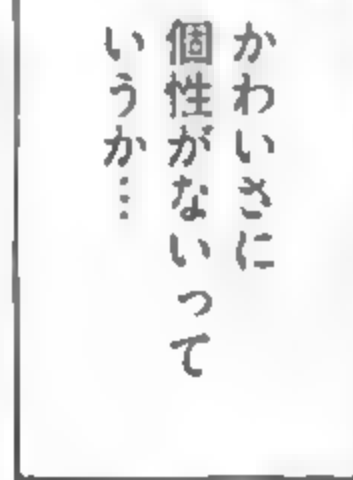 かわいさに
個性がないって
いうか…